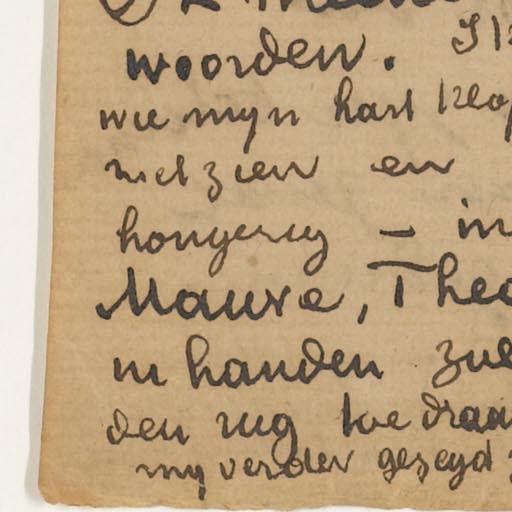 woorden. Ik
wie myn hart klop
niet zien en
hongerig – in
Mauve, Theo
in handen zul
den rug toe draai
my verder gezegd